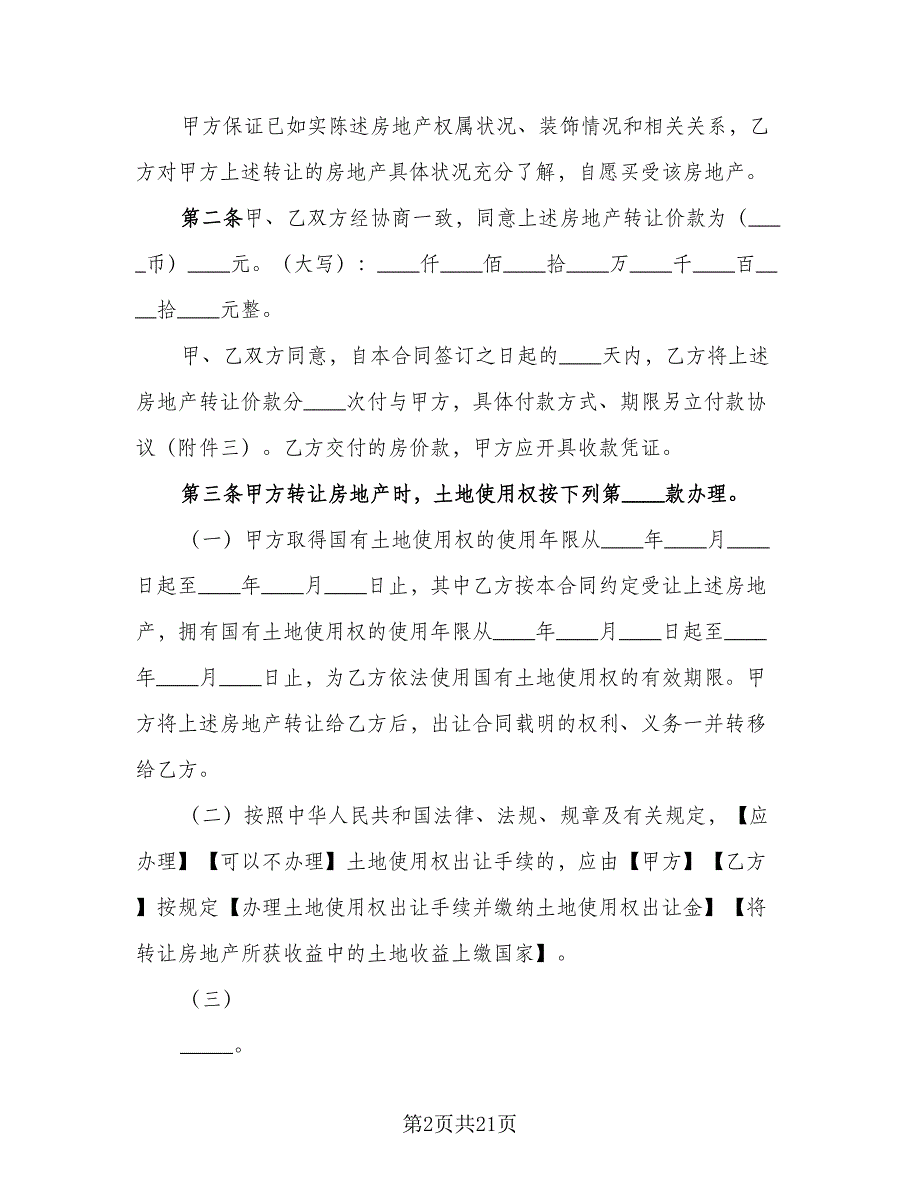 甲方保证已如实陈述房地产权属状况、装饰情况和相关关系，乙
方对甲方上述转让的房地产具体状况充分了解，自愿买受该房地产。
第二条甲、乙双方经协商一致，同意上述房地产转让价款为（___
_币）____元。（大写）：____仟____佰____拾____万____千____百__
__拾____元整。
甲、乙双方同意，自本合同签订之日起的____天内，乙方将上述
房地产转让价款分____次付与甲方，具体付款方式、期限另立付款协
议（附件三）。乙方交付的房价款，甲方应开具收款凭证。
第三条甲方转让房地产时，土地使用权按下列第____款办理。
（一）甲方取得国有土地使用权的使用年限从____年____月____
日起至____年____月____日止，其中乙方按本合同约定受让上述房地
产，拥有国有土地使用权的使用年限从____年____月____日起至____
年____月____日止，为乙方依法使用国有土地使用权的有效期限。甲
方将上述房地产转让给乙方后，出让合同载明的权利、义务一并转移
给乙方。
（二）按照中华人民共和国法律、法规、规章及有关规定，【应
办理】【可以不办理】土地使用权出让手续的，应由【甲方】【乙方
】按规定【办理土地使用权出让手续并缴纳土地使用权出让金】【将
转让房地产所获收益中的土地收益上缴国家】。
（三）
_____。
第2页共21页